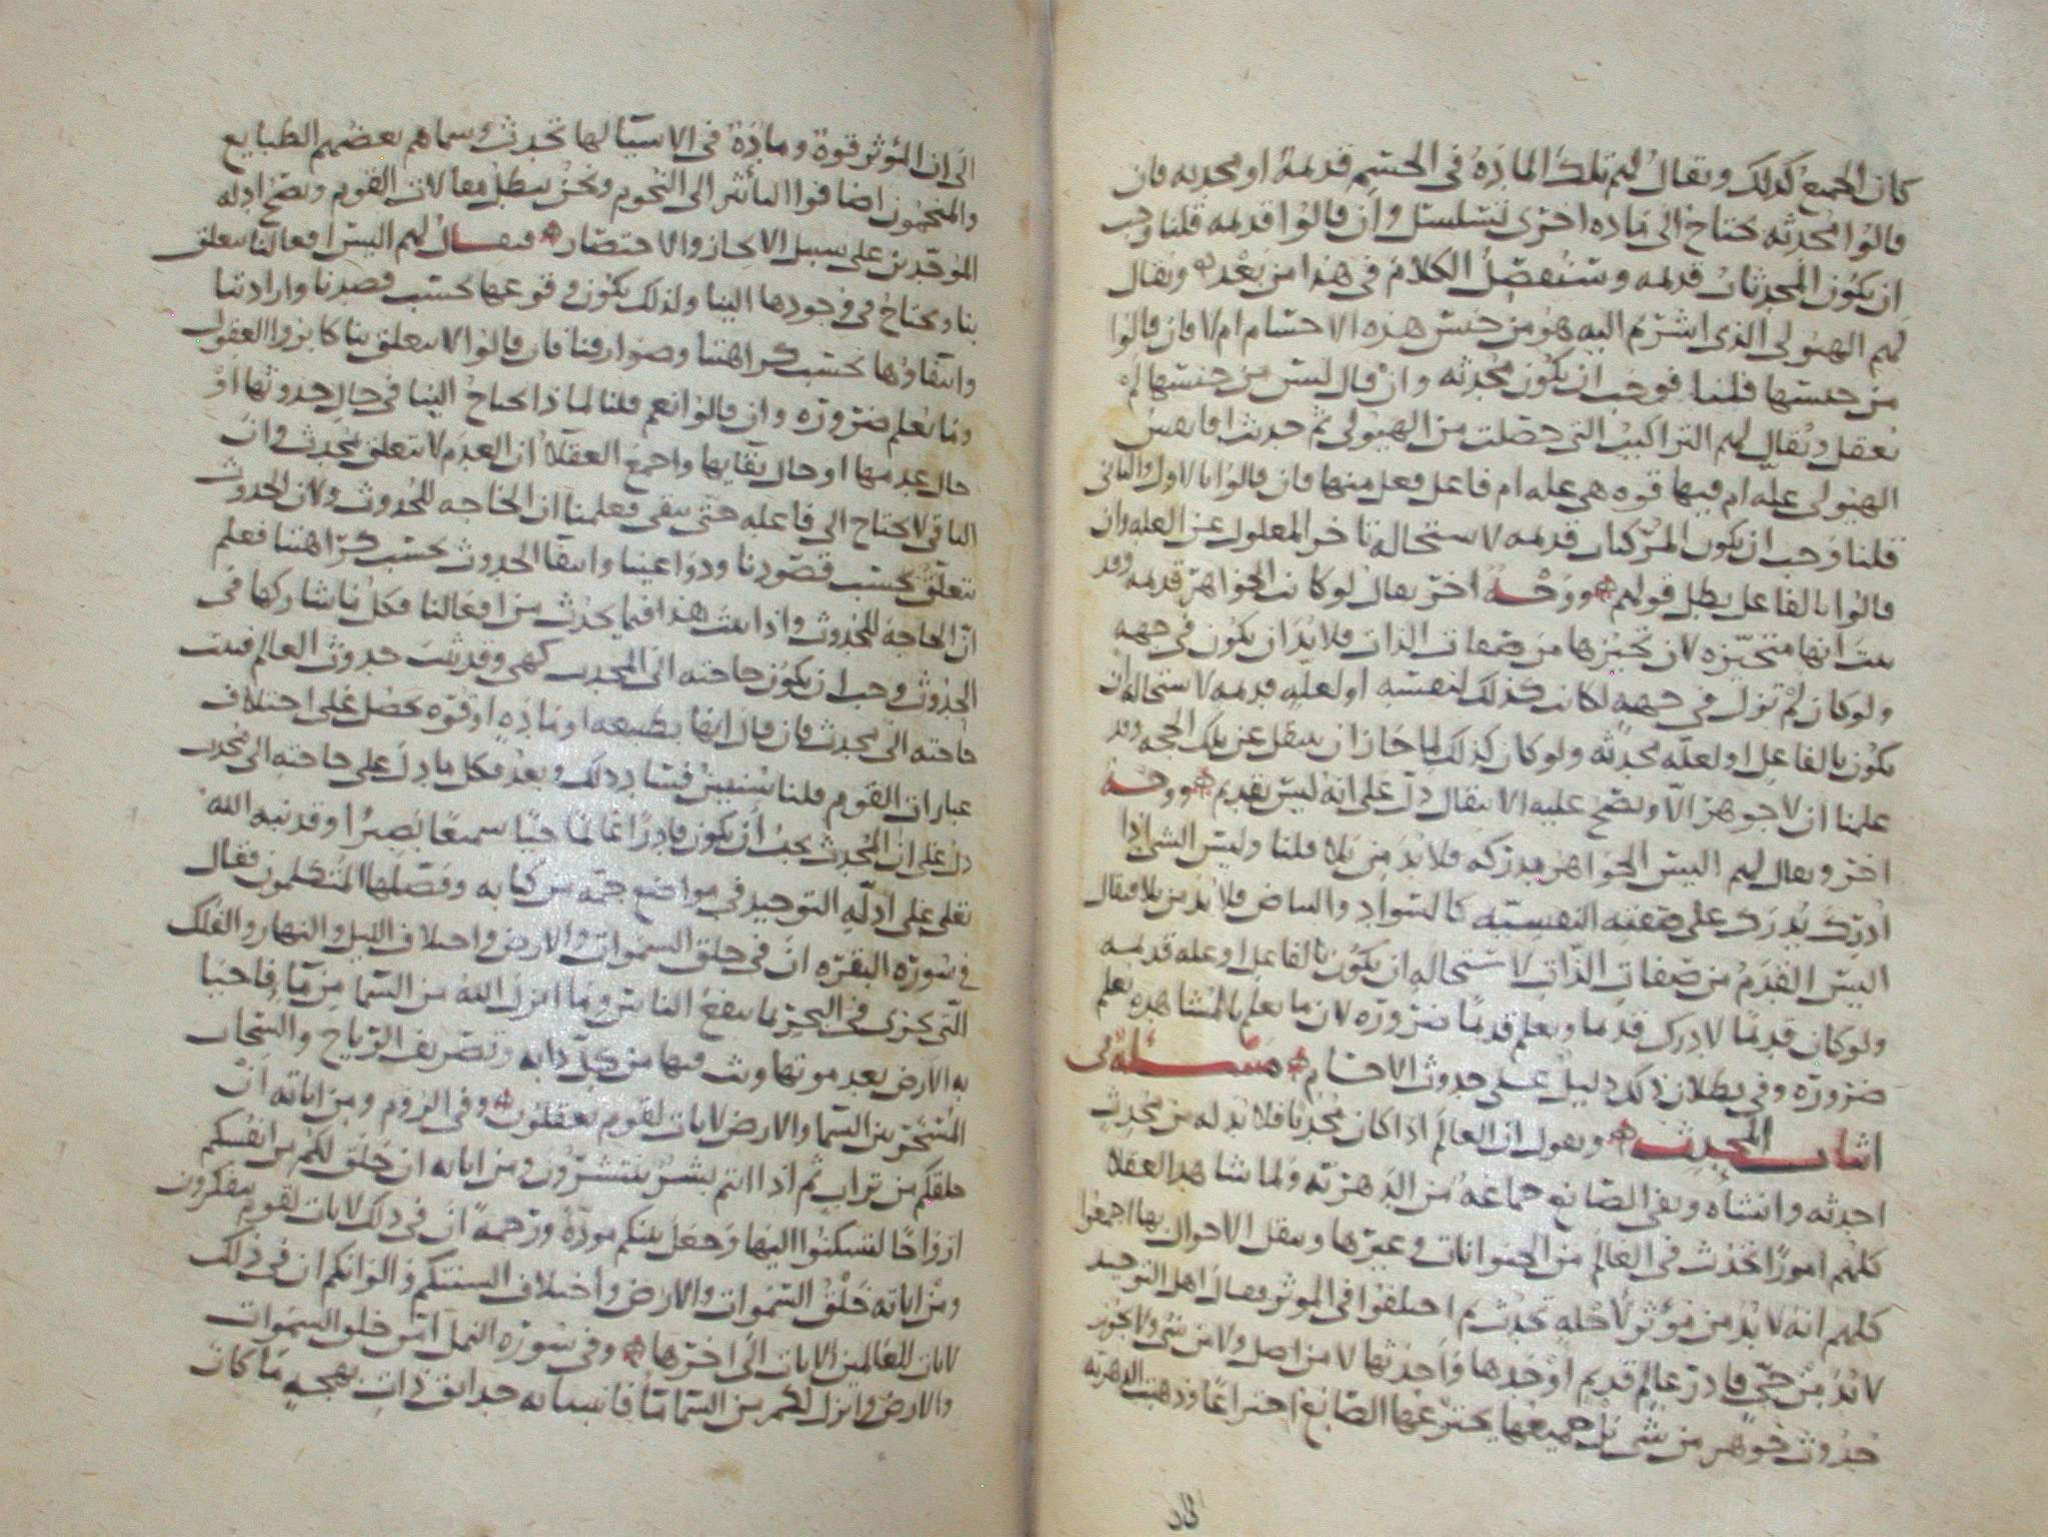 كان الجميع كذلك ويقال لهم تلك المادة في الجسم قديمة او محدثه فان
قالوا محدثه يحتاج الى ماده اخرى لتسلسل وان قالوا قديمه قلنا وجب
ان يكون المحدثات قديمه وسنفصل الكلام في هذا من بعد ويقال
لهم الهيولى الذي اشرتم اليه هو من جنس هذه الاجسام ام لا فان قالوا
من جنسها قلنا فوجب ان يكون محدثه وان قال ليس من جنسها لم
يعقل ويقال لهم التراكيب التي حصلت من الهيولى ثم حدثت افا نفس
الهيولى علة ام فيها قوه هي عله ام فاعل فعل منها فان قالوا بالاول والثاني
قلنا وجب ان يكون المركبات قديمه لاستحالة تاخر المعلول عن العله وان
قالوا بالفاعل بطل قولهم ووجه اخر يقال لو كانت الجواهر قديمه وقد
ثبت انها متحيزه لان تحيزها من صفات الذات فلا بد ان يكون في جهه
ولو كان لم تزل في جهة لكانت كذلك لنفسه او لعلة قديمه لاستحالة ان
يكون بالفاعل او لعله محدثه ولو كان كذلك لما جاز ان ينتقل عن تلك الجهة وقد
علمنا ان لا جوهر الا ويصح عليه الانتقال دل على انه ليس بقديم ووجه
اخر ويقال لهم اليس الجواهر مدركه فلا بد من بلا قلنا وليس الشي اذا
ادرك يدرك على صفته النفسية كالسواد والبياض فلا بد من بلا فيقال
اليس القدم من صفات الذات لاستحاله ان يكون بالفاعل او عله قديمه
ولو كان قديما لادرك قديما ويعلم قديما ضرورة لان ما يعلم بالمشاهده يعلم
ضرورة وفي بطلان ذلك دليل على حدوث الاجسام مسئلة في
اثبات المحدث ويقول ان العالم اذا كان محدثا فلا بد له من محدث
احدثه وانشاه ونفى الصانع جماعة من الدهرية ولما شاهد العقلا
كلهم امورا تحدث في العالم من الحيوانات وغيرها وينقل الاحوال بها اجمعوا
كلهم انه لا بد من مؤثر لاجله تحدث ثم اختلفوا في الموثر فقال اهل التوحيد
لا بد من حي قادر عالم قديم اوجدها واحدثها لا من اصل ولا من شي ولا يجوز
حدوث جوهر من شي بل جميعها يخترعها الصانع اختراعا وذهبت الدهريه
الى ان المؤثر قوة ومادة في الاشيا لها تحدث وسماهم بعضهم الطبايع
والمنجمون اضافوا التأثير الى النجوم ونحن نبطل مقالات القوم ونصحح ادله
الموحدين على سبيل الايجاز والاختصار فيقال لهم اليس افعالنا يتعلق
بنا ويحتاج في وجودها الينا ولذلك يكون وقوعها بحسب قصدنا وارادتنا
وانتفاؤها بحسب كراهتنا وصوارفنا فان قالوا لا يتعلق بنا كابروا العقول
وما يعلم ضروره وان قالوا نعم قلنا لماذا يحتاج الينا في حال حدوثها او
حال عدمها او حال بقايها واجمع العقلا ان العدم لا يتعلق بمحدث وان
الباقي لا يحتاج الى فاعله حتى يبقى فعلمنا ان الحاجه للحدوث ولان الحدوث
يتعلق بحسب قصودنا ودواعينا وانتفا الحدوث بحسب كراهتنا فعلم
ان الحاجة للحدوث واذا ثبت هذا فيما يحدث من افعالنا فكل ما شاركها في
الحدوث وجب ان يكون حاجته الى المحدث كهي وقد ثبت حدوث العالم فثبت
حاجته الى محدث فان قال انها بطبيعه او مادة او قوه يحصل على اختلاف
عبارات القوم قلنا سنبين فساد ذلك وبعد فكل ما دل على حاجته الى محدث
دل على ان المحدث يجب ان يكون قادرا عالما حيا سميعا بصيرا وقد نبه الله
تعلى على ادلة التوحيد في مواضع جمة من كتابه وفصلها المتكلمون فقال
في سورة البقرة ان في خلق السموات والارض واختلاف الليل والنهار والفلك
التي تجري في البحر بما ينفع الناس وما انزل الله من السما من ما فاحيا
به الارض بعد موتها وبث فيها من كل دابه وتصريف الرياح والسحاب
المسخر بين السما والارض لايات لقوم يعقلون وفي الروم ومن اياته ان
خلقكم من تراب ثم اذا انتم بشر تنتشرون ومن اياته ان خلق لكم من انفسكم
ازواجا لتسكنوا اليها وجعل بينكم مودة ورحمة ان في ذلك لايات لقوم يتفكرون
ومن اياته خلق السموات والارض واختلاف السنتكم والوانكم ان في ذلك
لايات للعالمين الايات الى اخرها وفي سورة النمل امن خلق السموات
والارض وانزل لكم من السما ما فانبتنا به حدايق ذات بهجة ما كان